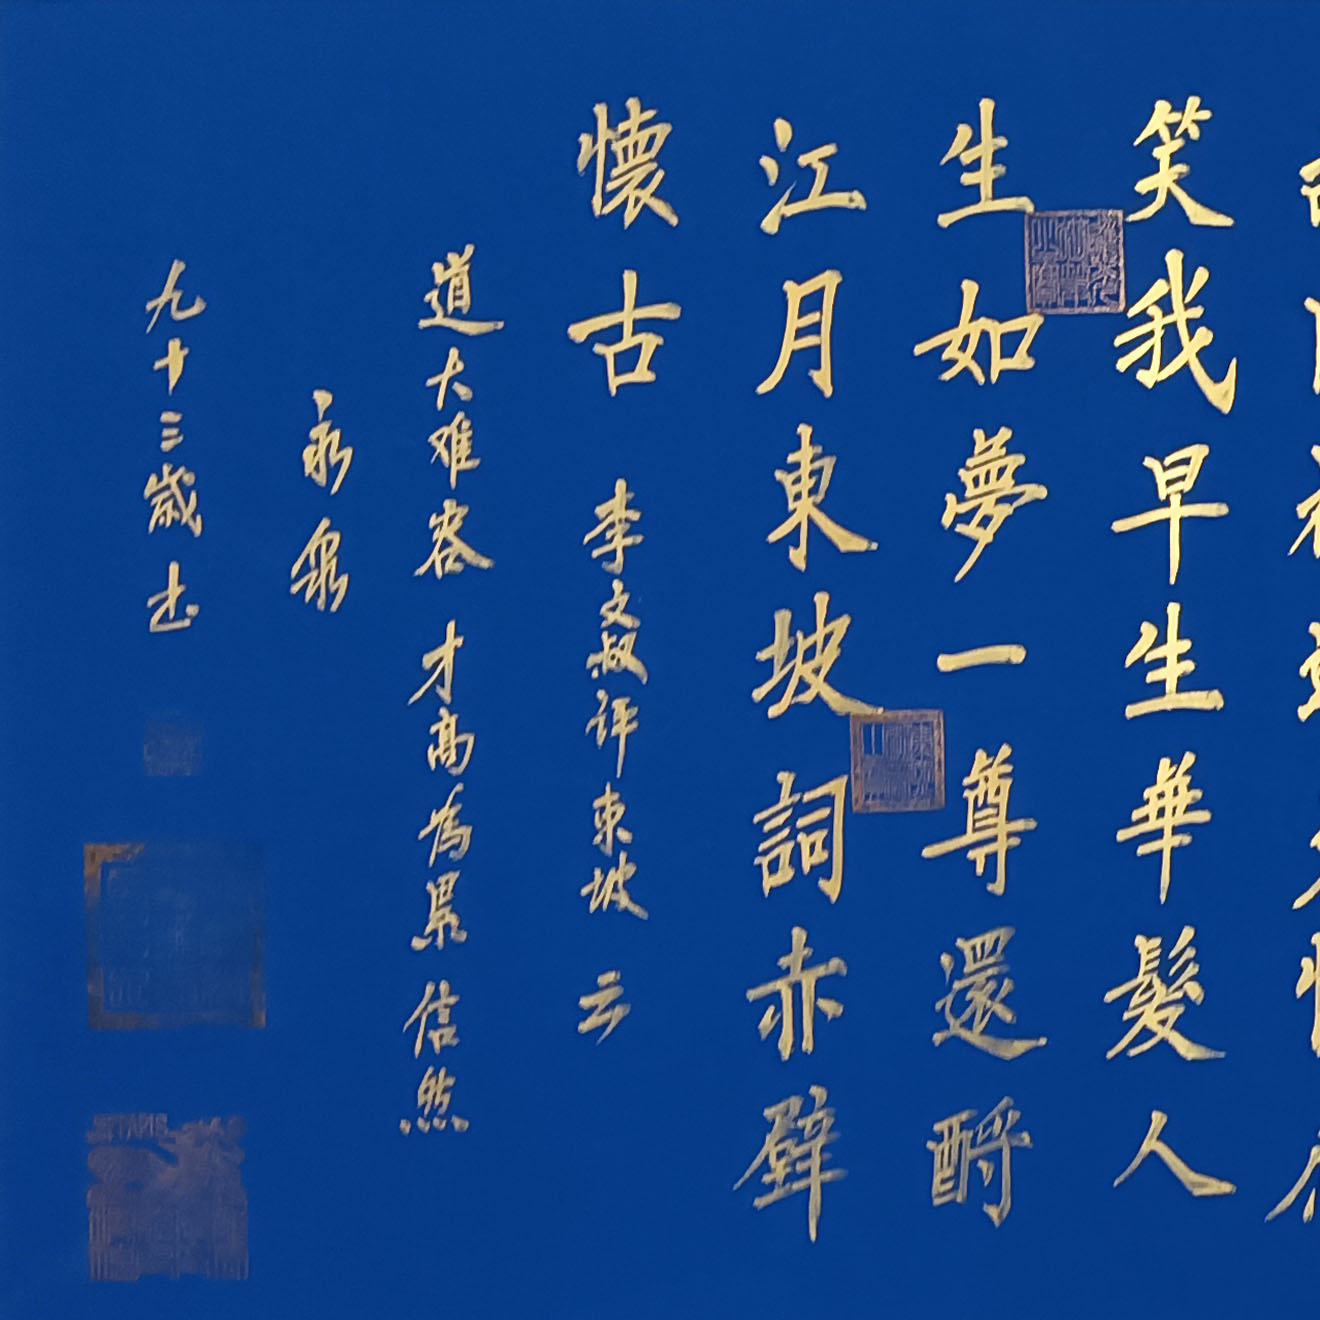 笑我早生華髮人
生如夢一尊還酹
江月東坡詞赤壁
懷古 李文叔評東坡云
道大难容才高為累信然
永泉
九十三歲书